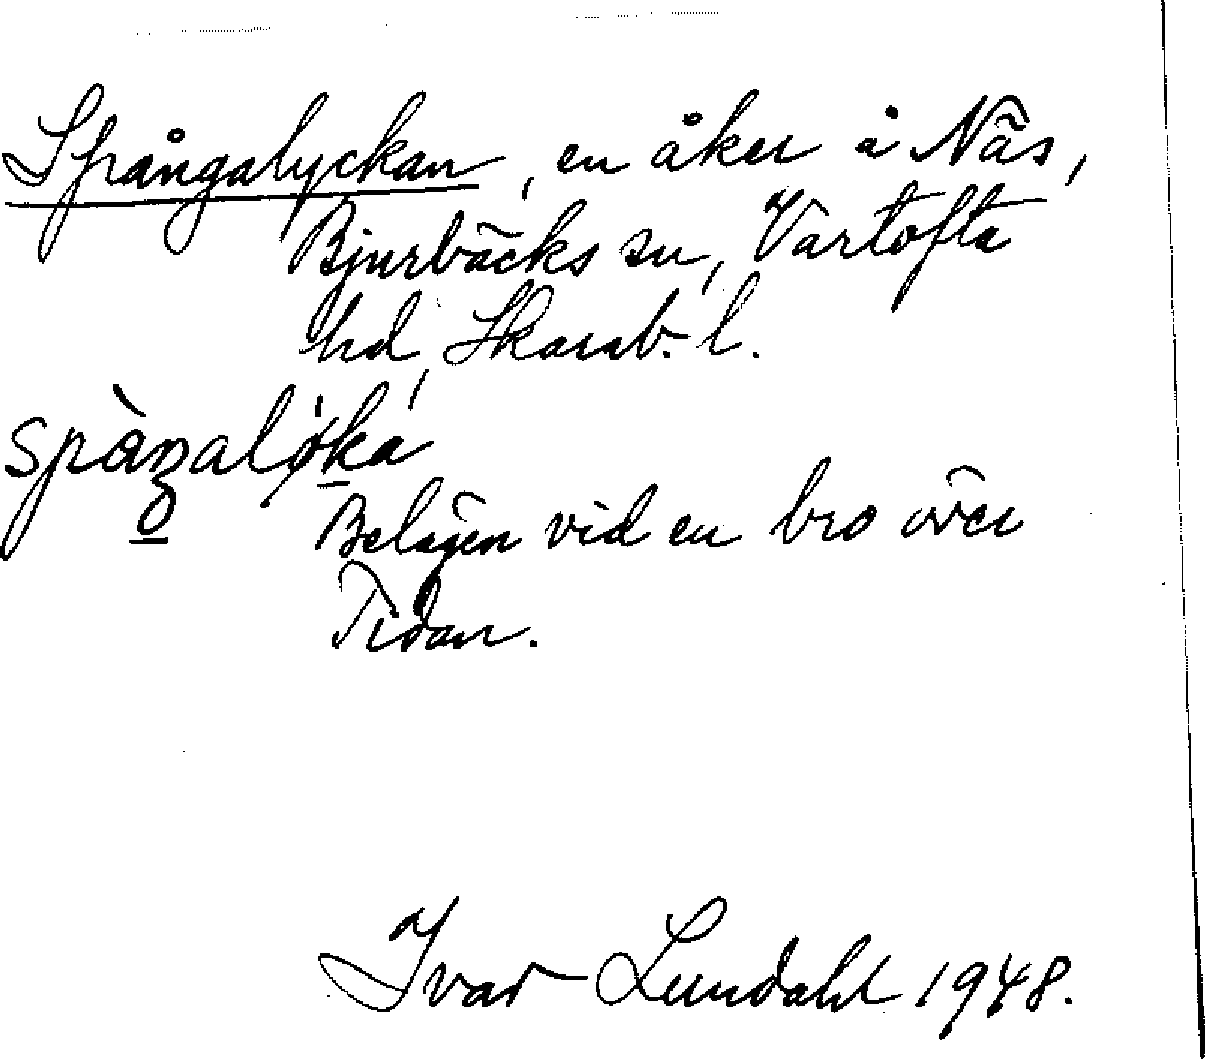 Spångalyckan, en åker å Näs,
Bjurbäcks sn, Vartofta
hd, Skarab. l.
Belägen vid en bro över
Tidan.
Ivar Lundahl 1948.